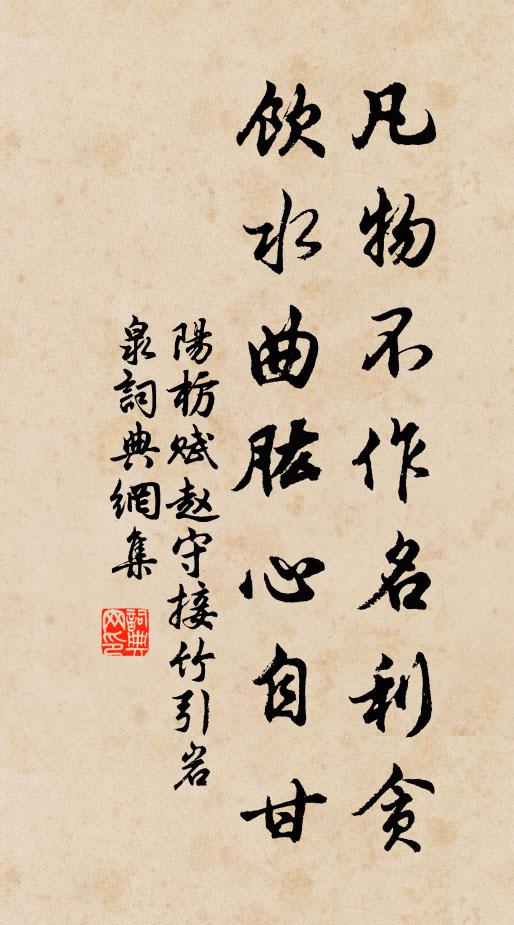 凡物不作名利貪
飲水曲肱心自甘
陽枋賦赵守接竹引岩
泉詞典網集
詞典网印